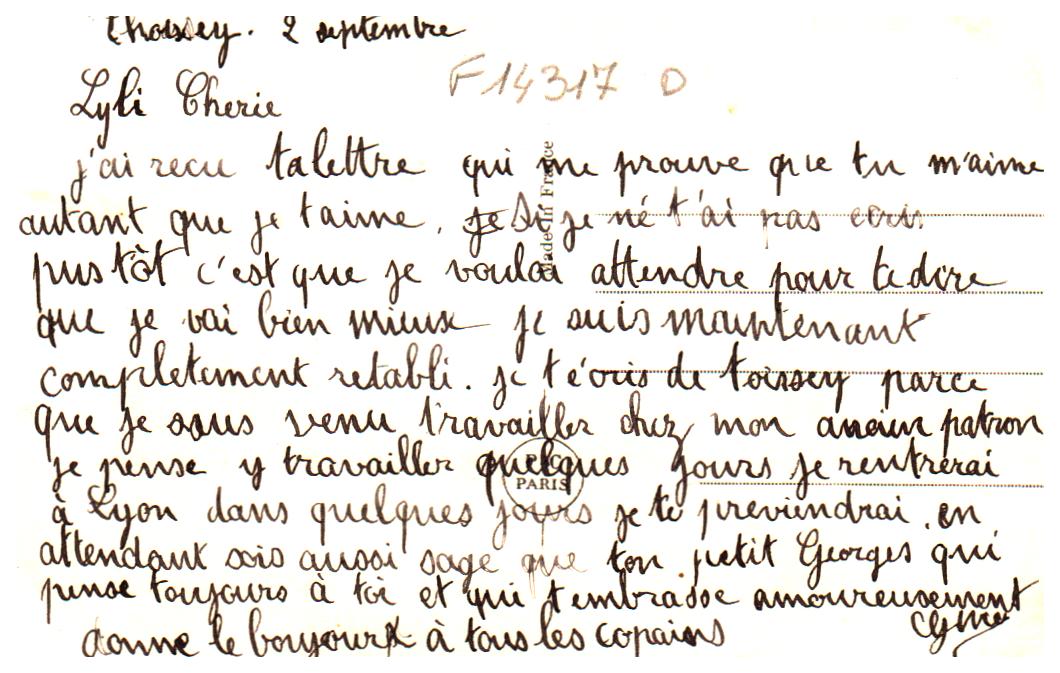 Thoissey. 2 septembre
F14317 D
Lyli Cherie
j'ai recu ta lettre qui me prouve que tu m'aime
autant que je t'aime. je Si je né t'ai pas ecris
pustôt c'est que je voulai attendre pour te dire
que je vai bien mieux je suis maintenant
completement retabli. je t'écris de toissey parce
que je suis venu travailler chez mon ancien patron
je pense y travailler quelques jours je rentrerai
à Lyon dans quelques jours je te previendrai. en
attendant sois aussi sage que ton petit Georges qui
pense toujours à toi et qui t'embrasse amoureusement
donne le boujour à tous les copains
Made in France
PARIS